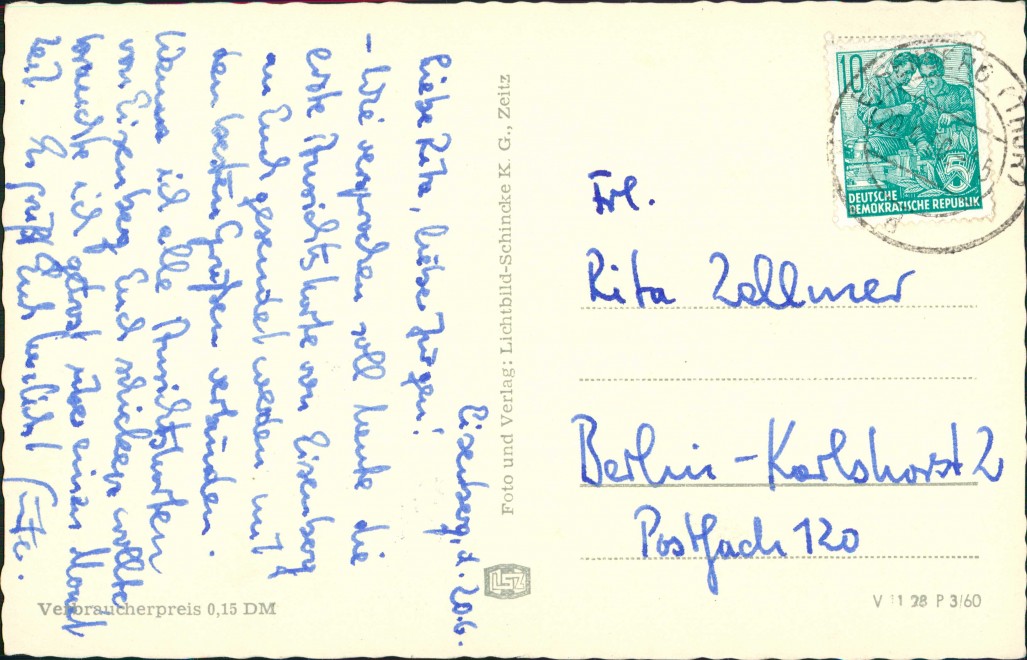 Eisenberg, d. 20.6.
Liebe Rita, lieber Jürgen!
– Wie versprochen soll heute die
erste Ansichtskarte von Eisenberg
an Euch gesendet werden mit
den besten Grüßen verbunden.
Wenn ich alle Ansichtskarten
von Eisenberg Euch schicken wollte
brauchte ich getrost über einen Monat
Zeit. Es grüßt Euch herzlichst
Foto und Verlag: Lichtbild-Schincke K. G., Zeitz
LSZ
Verbraucherpreis 0,15 DM
10
5
DEUTSCHE
DEMOKRATISCHE REPUBLIK
EISENBERG (THÜR)
Frl.
Rita Zollmer
Berlin-Karlshorst 2
Postfach 120
V 11 28 P 3/60